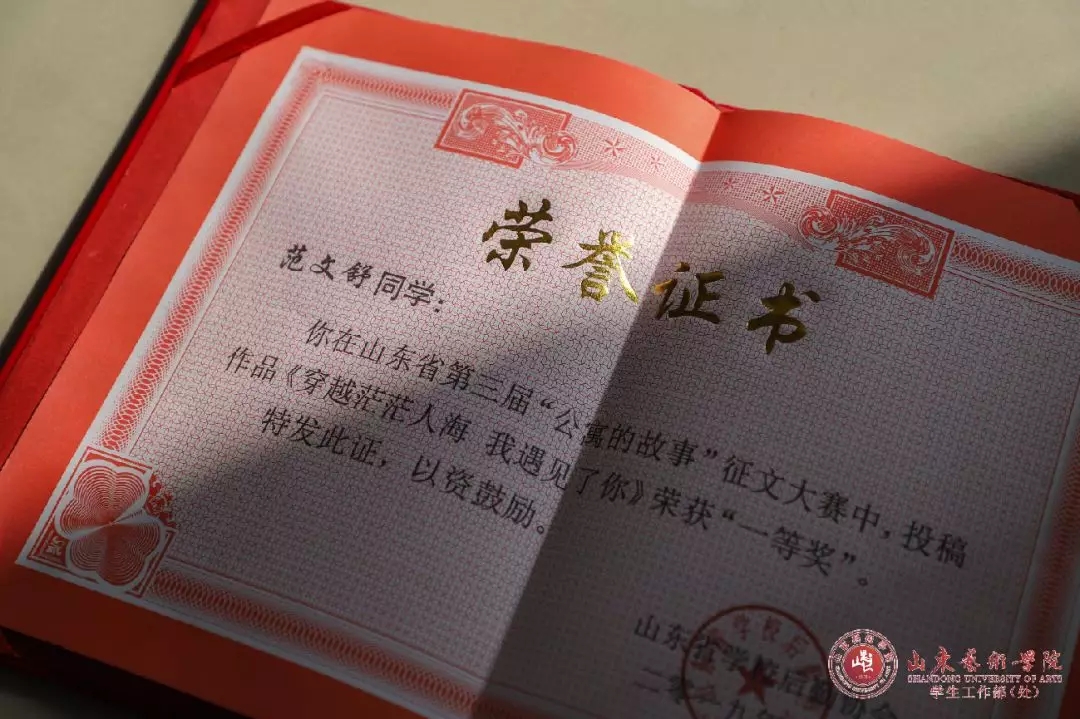 荣誉证书
范文舒同学：
你在山东省第三届“公寓的故事”征文大赛中，投稿
作品《穿越茫茫人海 我遇见了你》荣获“一等奖”。
特发此证，以资鼓励。
山东省学校后勤协会
二零一九年
山东艺术学院
SHANDONG UNIVERSITY OF ARTS
学生工作部（处）